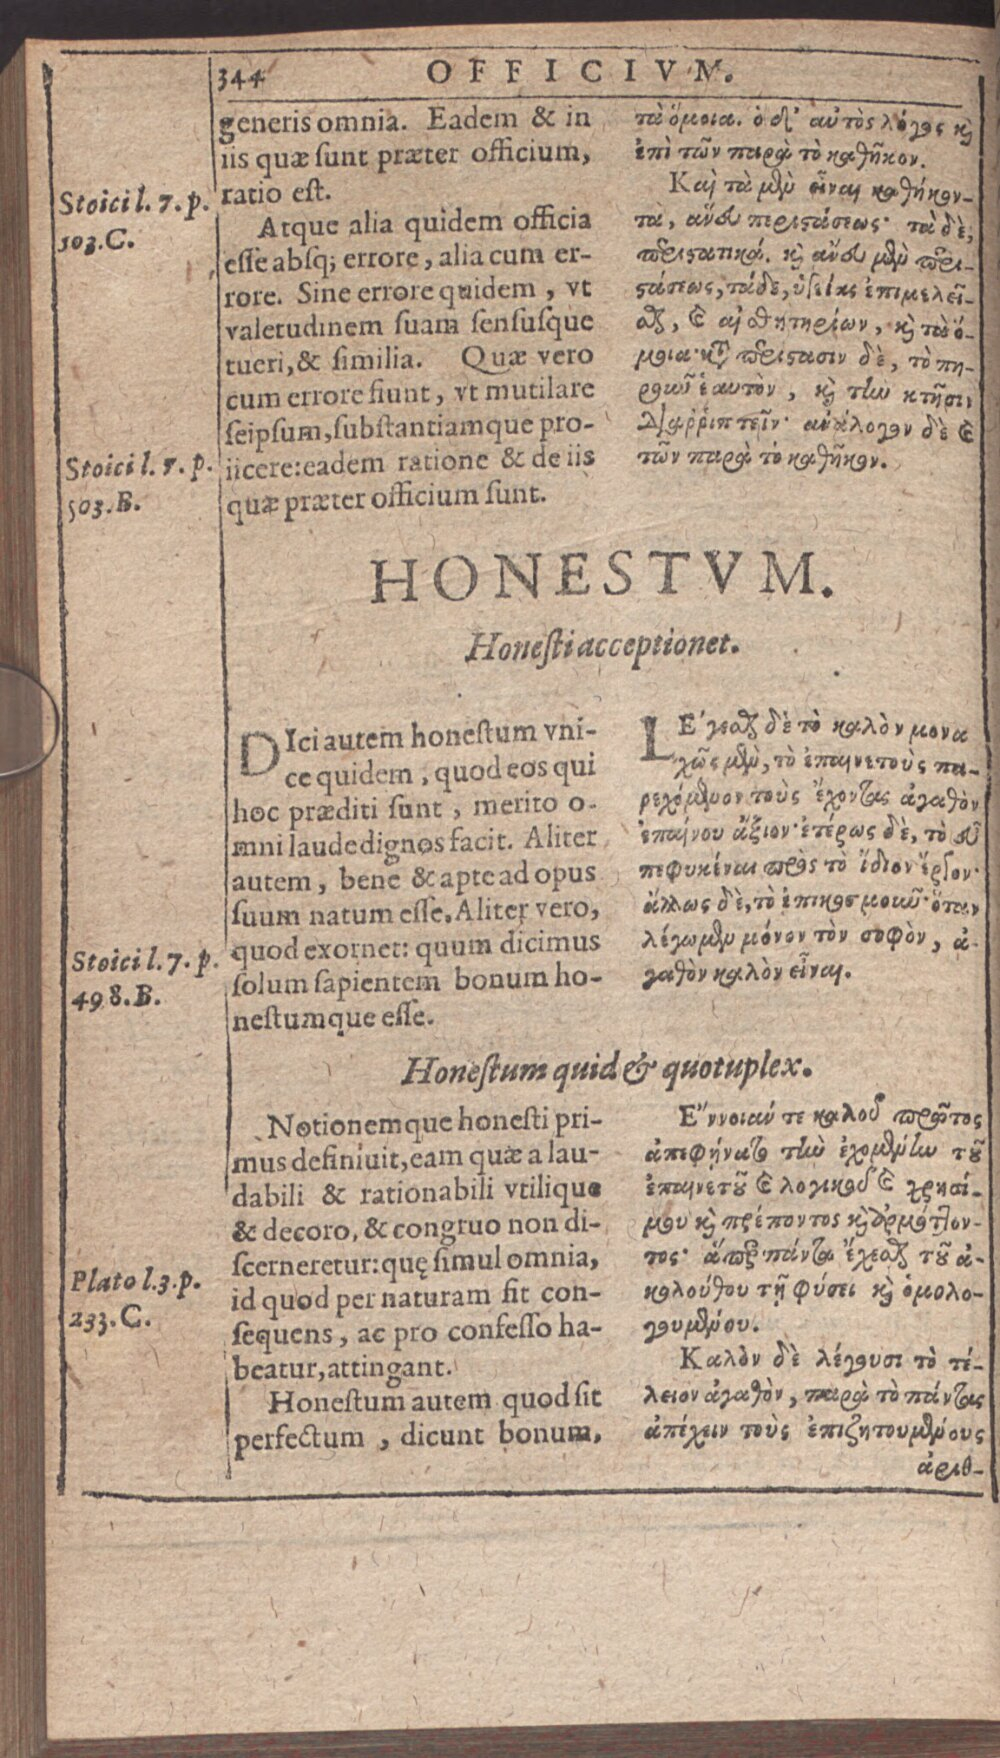 344
OFFICIVM.
generis omnia. Eadem & in
iis quæ ſunt præter officium,
ratio eſt.
Stoici l. 7. p.
503. C.
Atque alia quidem officia
eſſe abſq; errore, alia cum er-
rore. Sine errore quidem, vt
valetudinem ſuam ſenſuſque
tueri, & ſimilia. Quæ vero
cum errore fiunt, vt mutilare
ſeipſum, ſubſtantiamque pro-
Stoici l. 7. p.
503. B.
iicere: eadem ratione & de iis
quæ præter officium ſunt.
τὰ ὅμοια. ὁ δ’ αὐτὸς λόγος κὶ
ἐπὶ τῶν παρὰ τὸ καθῆκον.
Καὶ τὰ μὲν εἶναι καθήκον-
τα, ἄνευ περιστάσεως· τὰ δὲ,
περιστατικά. κὶ ἄνευ μὲν περι-
στάσεως, τάδε, ὑγείας ἐπιμελεῖ-
σθαι, καὶ αἰσθητηρίων, κὶ τὰ ὅ-
μοια· κατὰ περίστασιν δὲ, τὸ πη-
ροῦν ἑαυτὸν, κὶ τὴν κτῆσιν
διαρρίπτειν· ἀνάλογον δὲ καὶ
τῶν παρὰ τὸ καθῆκον.
HONESTVM.
Honeſti acceptionet.
DIci autem honeſtum vni-
ce quidem, quod eos qui
hoc præditi ſunt, merito o-
mni laude dignos facit. Aliter
autem, bene & apte ad opus
ſuum natum eſſe. Aliter vero,
Stoici l. 7. p.
498. B.
quod exornet: quum dicimus
ſolum ſapientem bonum ho-
neſtumque eſſe.
ΛΕ’γεσθαι δὲ τὸ καλὸν μονα
χῶς μὲν, τὸ ἐπαινετοὺς πα-
ρεχόμενον τοὺς ἔχοντας ἀγαθὸν
ἐπαίνου ἄξιον· ἑτέρως δὲ, τὸ εὖ
πεφυκέναι πρὸς τὸ ἴδιον ἔργον·
ἄλλως δὲ, τὸ ἐπικοσμοῦν· ὅταν
λέγωμεν μόνον τὸν σοφὸν, ἀ-
γαθὸν καλὸν εἶναι.
Honeſtum quid & quotuplex.
Notionemque honeſti pri-
mus definiuit, eam quæ a lau-
dabili & rationabili vtilique
& decoro, & congruo non di-
ſcerneretur: quę ſimul omnia,
Plato l. 3. p.
233. C.
id quod per naturam ſit con-
ſequens, ac pro confeſſo ha-
beatur, attingant.
Honeſtum autem quod ſit
perfectum, dicunt bonum,
Ε῎ννοιάν τε καλοῦ πρῶτος
ἀπεφήνατο τὴν ἐχομένην τοῦ
ἐπαινετοῦ καὶ λογικοῦ καὶ χρησί-
μου κὶ πρέποντος κὶ ἁρμόττον-
τος· ἅπερ πάντα ἔχεσθαι τοῦ ἀ-
κολούθου τῇ φύσει κὶ ὁμολο-
γουμένου.
Καλὸν δὲ λέγουσι τὸ τέ-
λειον ἀγαθὸν, παρὰ τὸ πάντας
ἀπέχειν τοὺς ἐπιζητουμένους
ἀριθ-